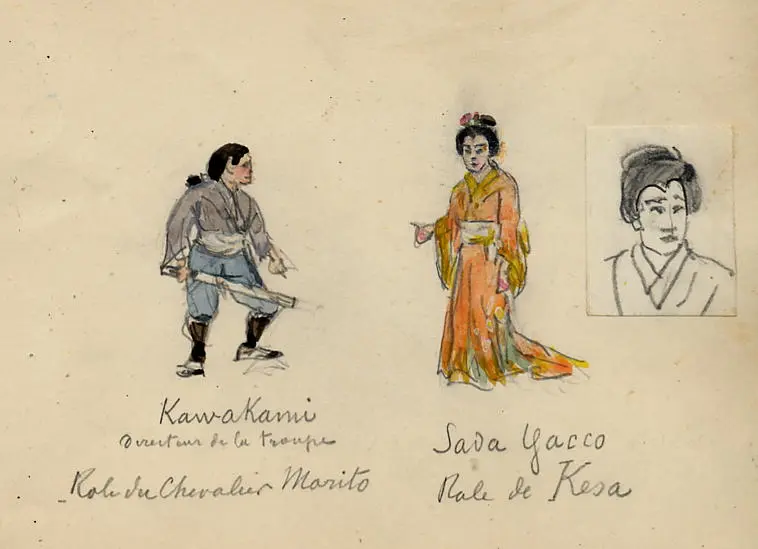 Kawakami
Directeur de la troupe
Role du Chevalier Morito
Sada Yacco
Role de Kesa